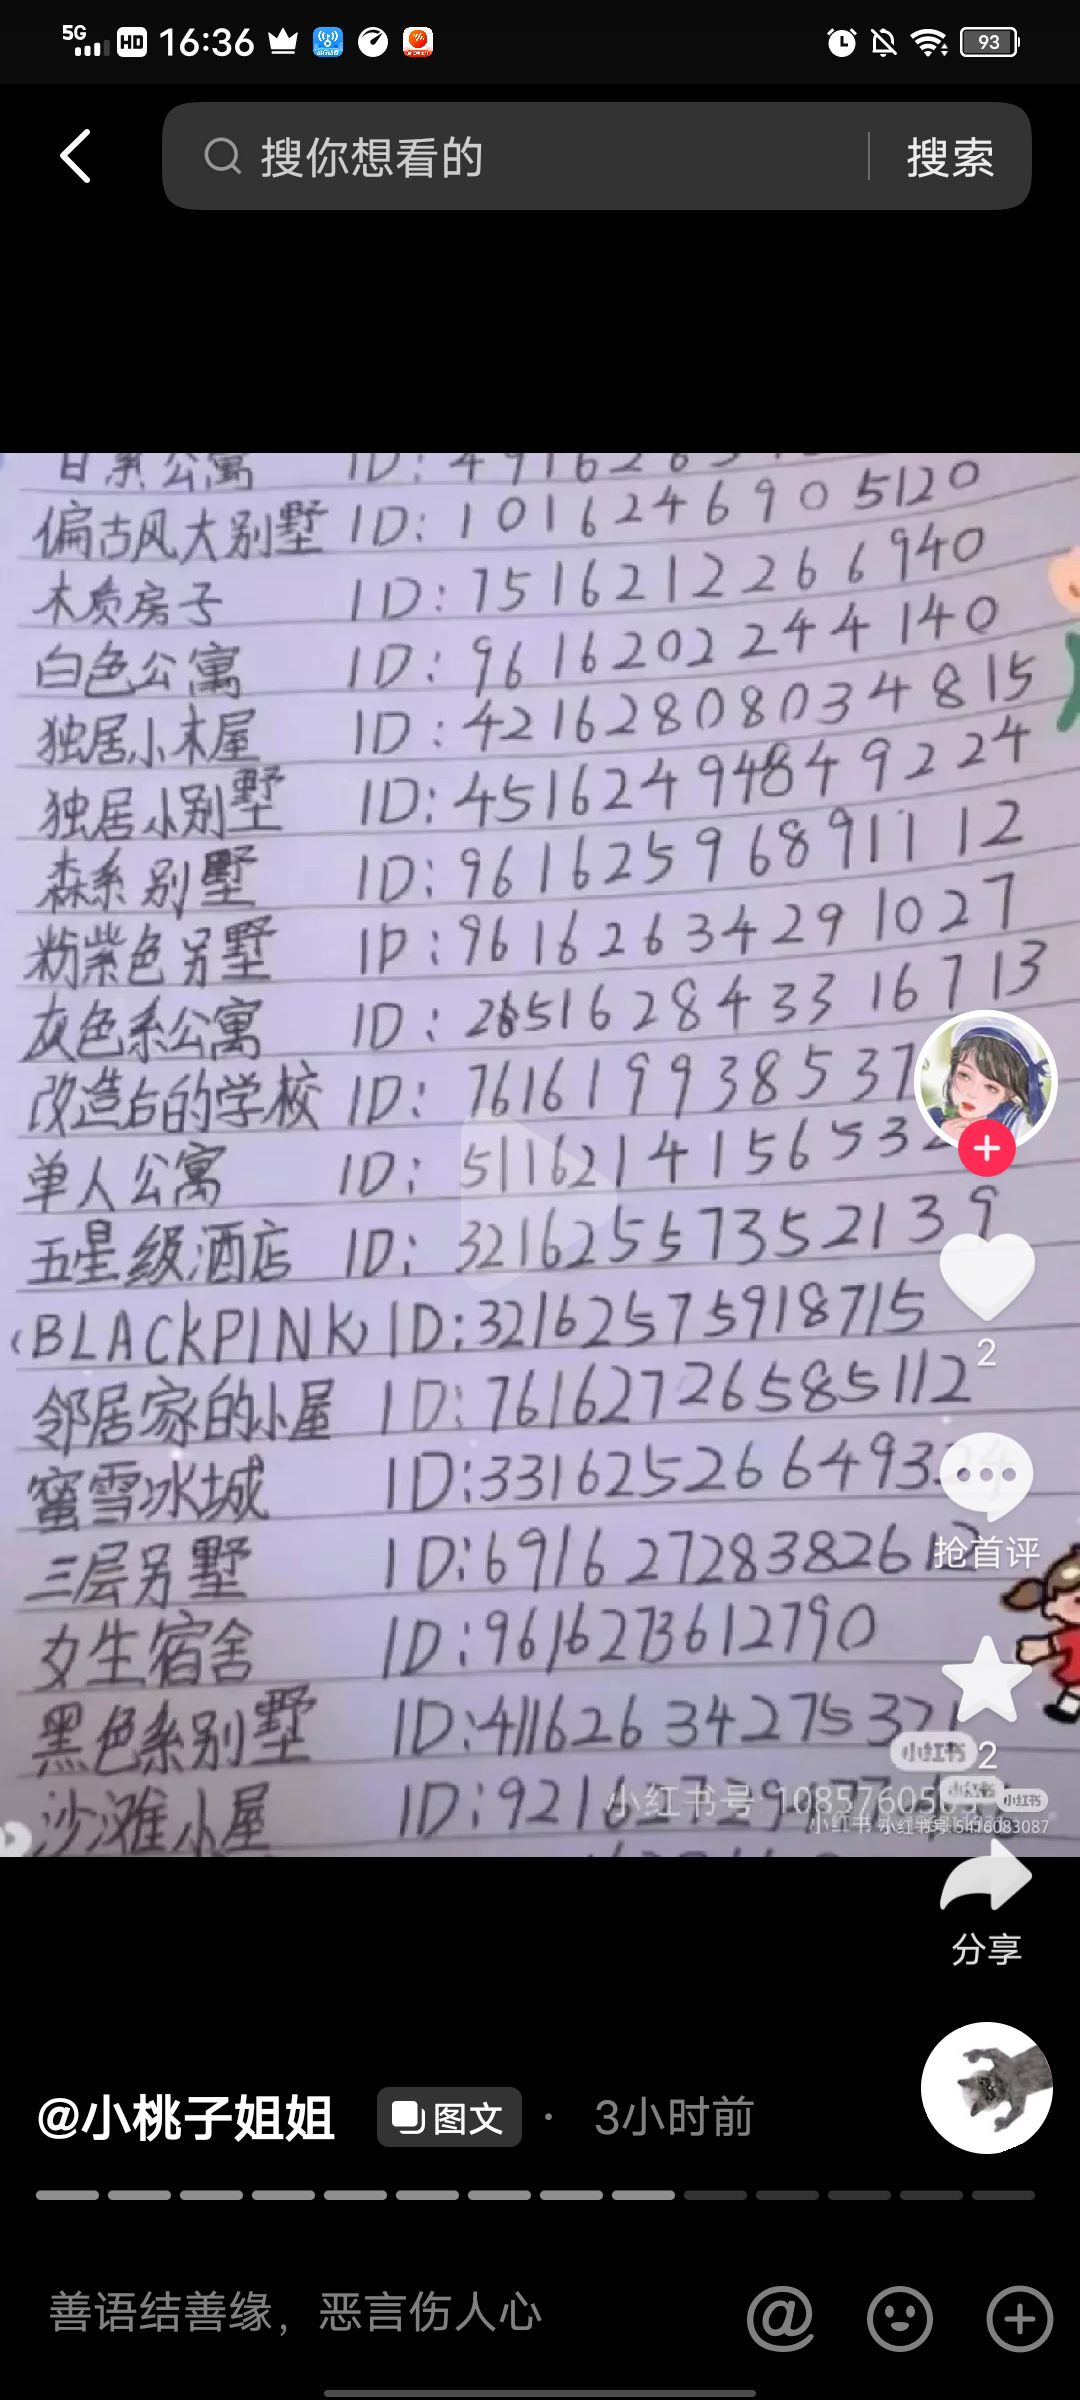 5G HD 16:36 93
搜你想看的 搜索
日系公寓 ID: 4916263
偏古风大别墅 ID: 1016246905120
木质房子 ID: 7516212266940
白色公寓 ID: 9616202244140
独居小木屋 ID: 42162808034815
独居小别墅 ID: 45162494849224
森系别墅 ID: 96162596891112
粉紫色另墅 ID: 96162634291027
灰色系公寓 ID: 265162843316713
改造后的学校 ID: 761619938537
单人公寓 ID: 511621415653
五星级酒店 ID: 32162557352139
(BLACKPINK) ID: 32162575918715
邻居家的小屋 ID: 76162726585112
2
蜜雪冰城 ID: 331625266493
三层另墅 ID: 6916272838261
抢首评
女生宿舍 ID: 9616273612790
黑色系别墅 ID: 41162634275321
小红书 2
沙滩小屋 ID: 92162729
小红书号: 10857605
小红书 小红书号:5416083087
小红书
小红书
分享
@小桃子姐姐 图文 · 3小时前
善语结善缘，恶言伤人心